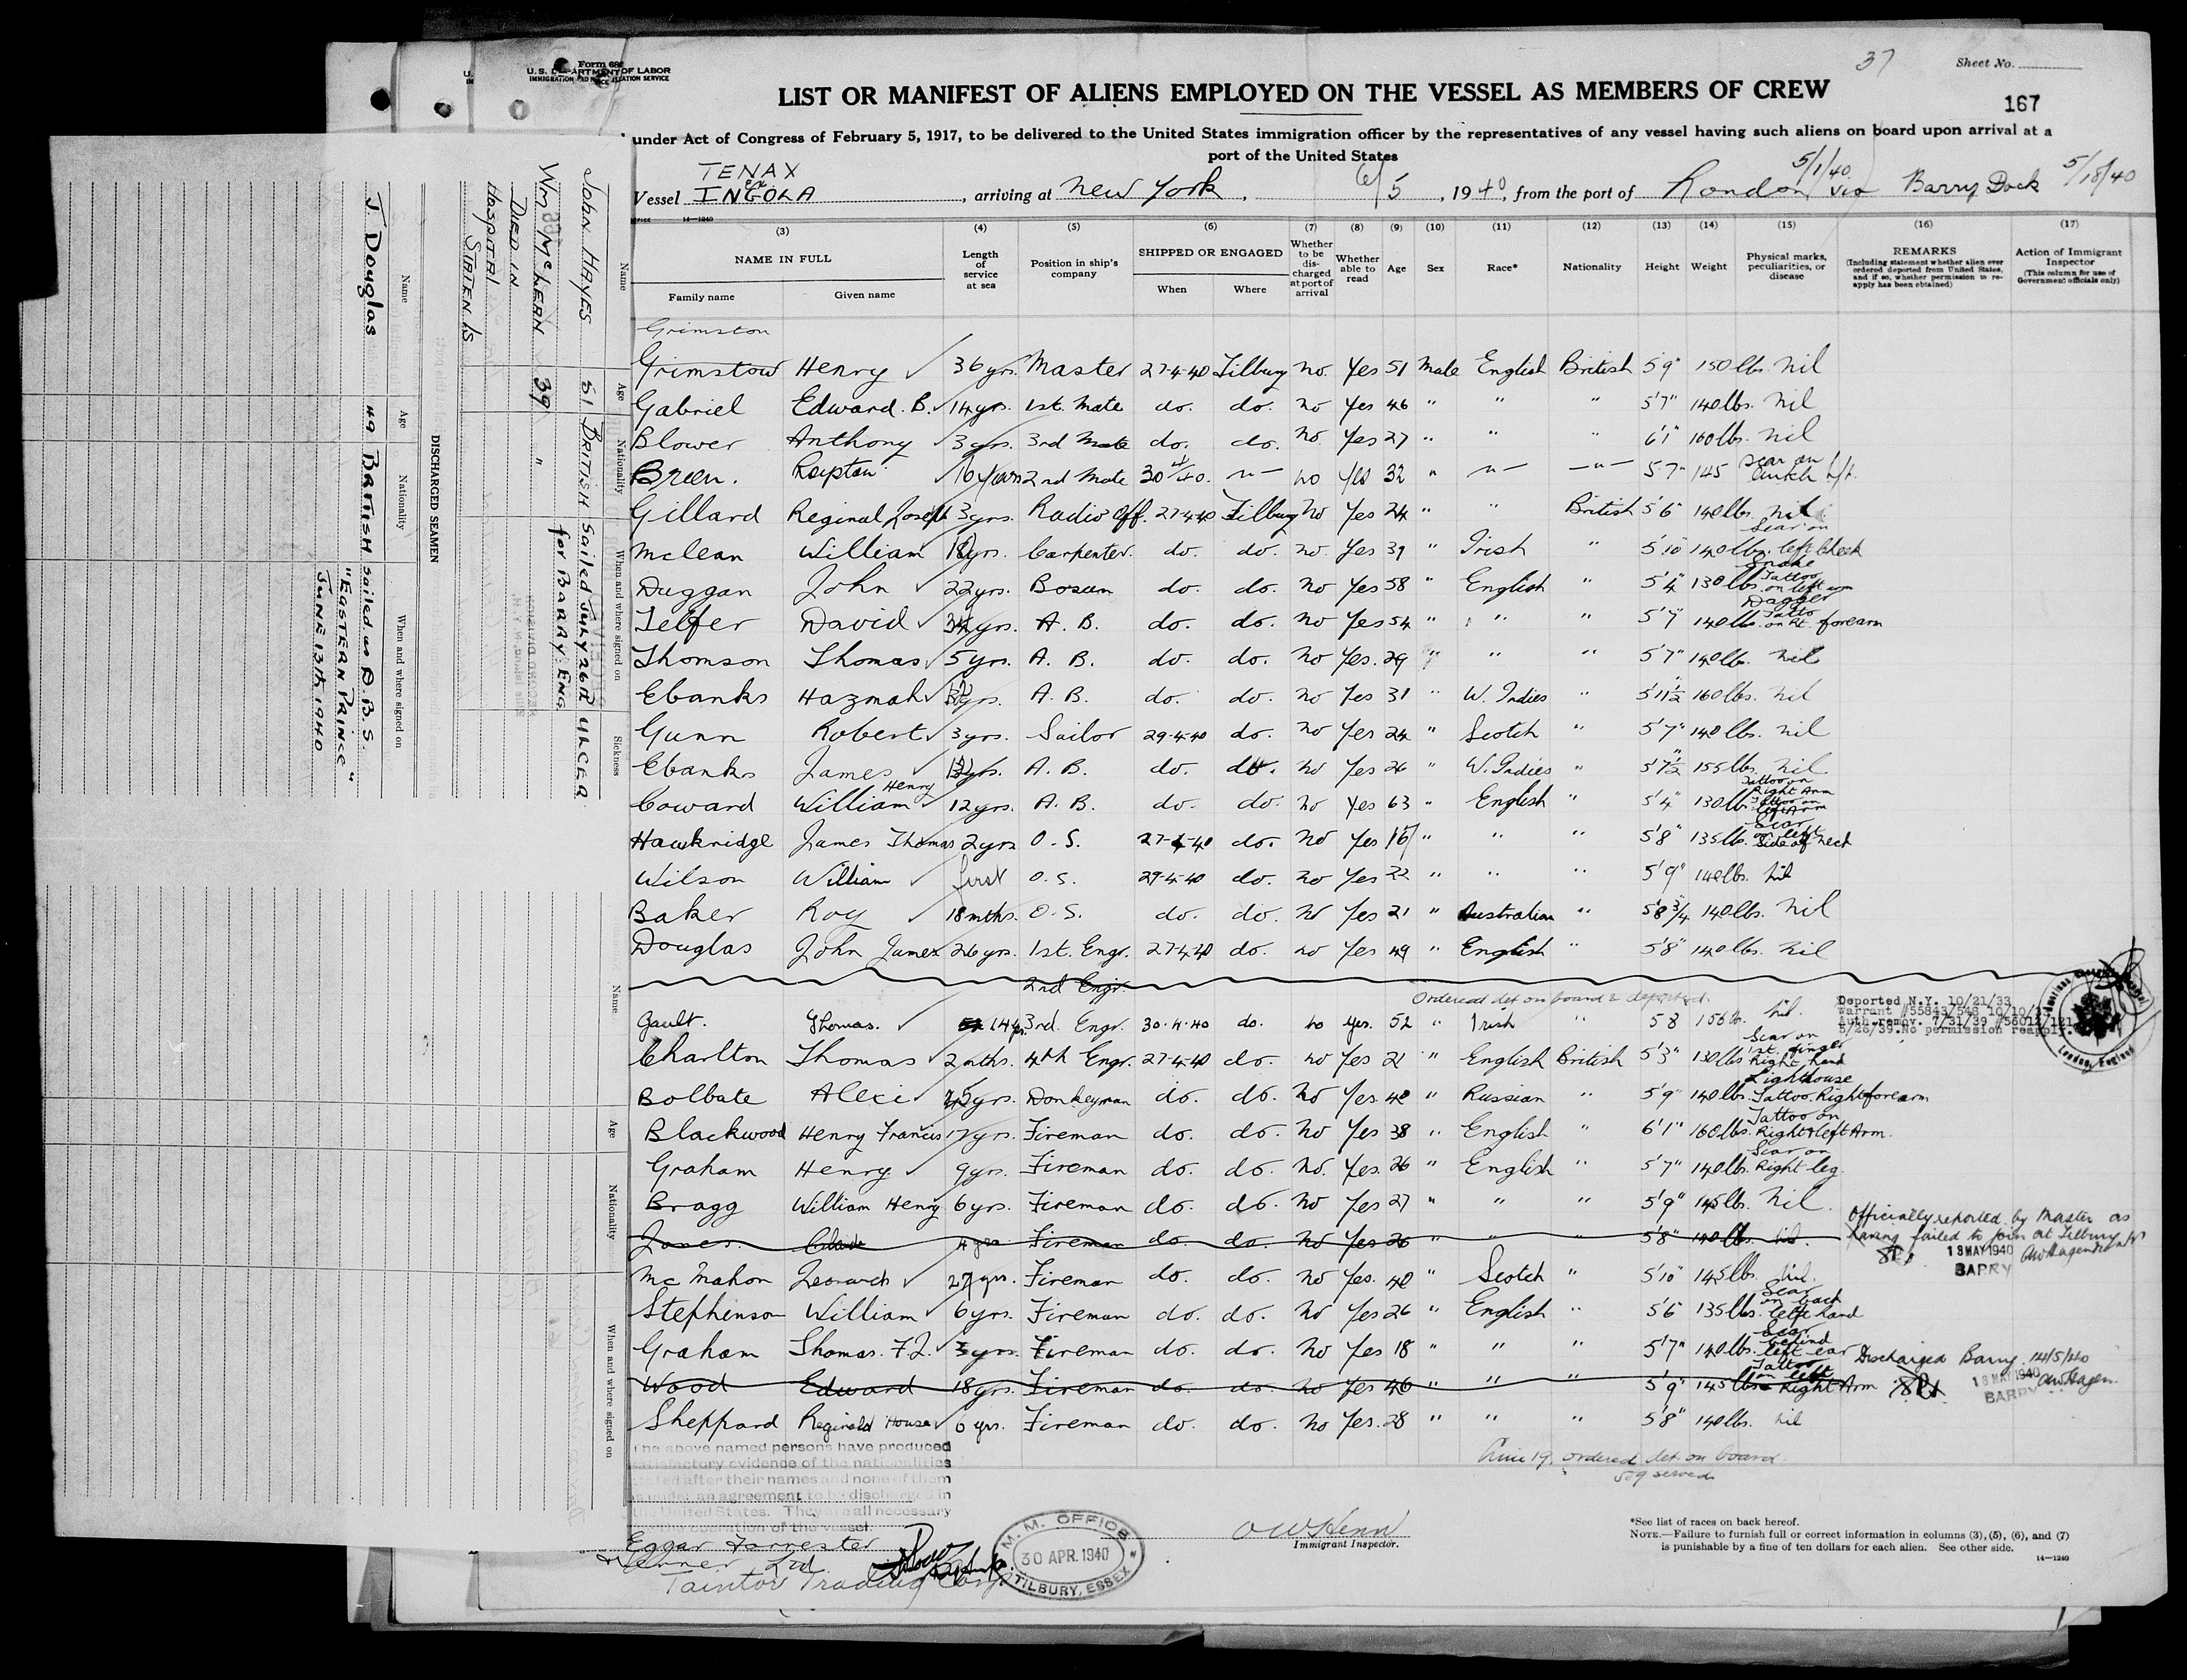 Form 680
U.S. DEPARTMENT OF LABOR
IMMIGRATION AND NATURALIZATION SERVICE
37
Sheet No.
167
LIST OR MANIFEST OF ALIENS EMPLOYED ON THE VESSEL AS MEMBERS OF CREW
under Act of Congress of February 5, 1917, to be delivered to the United States immigration officer by the representatives of any vessel having such aliens on board upon arrival at a
port of the United States
TENAX
ex
Vessel INGOLA, arriving at New York, 6/5, 1940, from the port of London 5/1/40 via Barry Dock 5/18/40
14—1240
(3) (4) (5) (6) (7) (8) (9) (10) (11) (12) (13) (14) (15) (16) (17)
NAME IN FULL
Family name
Given name
Length of service at sea
Position in ship's company
SHIPPED OR ENGAGED
When
Where
Whether to be discharged at port of arrival
Whether able to read
Age
Sex
Race*
Nationality
Height
Weight
Physical marks, peculiarities, or disease
REMARKS
(Including statement whether alien ever ordered deported from United States, and if so, whether permission to reapply has been obtained)
Action of Immigrant Inspector
(This column for use of Government officials only)
Grimston
Grimstow Henry 36 yrs. Master 27-4-40 Tilbury no Yes 51 Male English British 5'9" 150 lbs. nil
Gabriel Edward. B. 14 yrs. 1st. Mate do. do. no Yes 46 " " " 5'7" 140 lbs. nil
Blower Anthony 3 yrs. 3rd Mate do. do. no Yes 27 " " " 6'1" 160 lbs. nil
Breen. 16 years 2nd Mate 30/4/40. —"— no yes 32 " —"— —"— 5'7" 145 Scar on
Gillard Reginal Joseph 3 yrs. Radio Off. 27-4-40 Tilbury No Yes 24 " " British 5'6" 140 lbs. nil
Mclean William 18 yrs. Carpenter. do. do. no. Yes 39 " Irish " 5'10" 140 lbs. Scar on left Cheek
Duggan John 22 yrs. Bosun do. do. no Yes 58 " English " 5'4" 130 lbs. Snake Tattoo on left arm
Telfer David 34 yrs. A. B. do. do. no Yes 54 " " " 5'7" 140 lbs. Dagger Tatto on Rt. forearm
Thomson Thomas 5 yrs. A. B. do. do. No Yes. 29 " " " 5'7" 140 lb. nil
Ebanks Hazmah yrs. A. B. do. do. no Yes 31 " W. Indies " 5'11½" 160 lbs. nil
Gunn Robert 3 yrs. Sailor 29-4-40 do. no Yes 24 " Scotch " 5'7" 140 lbs. nil
Ebanks James yrs. A. B. do. do. no Yes 26 " W. Indies " 5'7½" 155 lbs. nil
Coward William Henry 12 yrs. A. B. do. do. no Yes 63 " English " 5'4" 130 lb. Tattoo on Right Arm Tattoo on left Arm
Hawkridge James Thomas 2 yrs O. S. 27-4-40 do. No Yes 16 " " " 5'8" 135 lb. Scar on left side of neck
Wilson William first O. S. 29-4-40 do. no Yes 22 " " " 5'9" 140 lb. nil
Baker Roy 18 mths. O. S. do. do. no Yes 21 " Australian " 5'8¾ 140 lbs. nil
Douglas John James 26 yrs. 1st. Engr. 27-4-40 do. no Yes 49 " English " 5'8" 140 lbs. nil
2nd Engr.
Ordered det on board & deported.
Gault. Thomas. 14 yrs 3rd. Engr. 30-4-40 do. no yes. 52 " Irish " 5 8 156 lb. nil.
Deported N.Y. 10/21/33
Warrant #55843/548 10/10/33
Auth.remov. 7/31/39 #56011/121
5/26/39.No permission reapply.
Charlton Thomas 2 mths. 4th Engr. 27-4-40 do. no Yes 21 " English British 5'3" 130 lbs Scar on 1st. finger Right hand
Bolbate Alexi yrs. Donkeyman do. do. No Yes. 48 " Russian " 5'9" 140 lbs. Lighthouse Tattoo. Right forearm
Blackwood Henry Francis 17 yrs. Fireman do. do. No Yes 38 " English " 6'1" 160 lbs. Tattoo on Right & left Arm.
Graham Henry 9 yrs. Fireman do. do. No. Yes. 26 " English " 5'7" 140 lb. Scar on Right leg.
Bragg William Henry 6 yrs. Fireman do. do. No Yes 27 " " " 5'9" 145 lbs. nil.
Jones. Clive 4 yrs Fireman do. do. No Yes 26 " " " 5'8" 140 lb. nil.
Officially reported by Master as
having failed to join at Tilbury
18 MAY 1940
BARRY
Mc Mahon Leonard 27 yrs. Fireman do. do. No Yes. 40 " Scotch " 5'10" 145 lbs. nil.
Stephenson William 6 yrs. Fireman do. do. No Yes 26 " English " 5'6" 135 lbs. Scar on back left hand
Graham Thomas. F.J. 3 yrs. Fireman do. do. No Yes 18 " " " 5'7" 140 lbs. Scar behind left ear
Wood Edward 18 yrs. Fireman do. do. no Yes 46 " " " 5'9" 145 lbs Tattoo on left & Right Arm
Discharged Barry. 14/5/40
18 MAY 1940
BARRY
Sheppard Reginald House 6 yrs. Fireman do. do. No Yes. 28 " " " 5'8" 140 lbs. nil
The above named persons have produced
satisfactory evidence of the nationalities
stated after their names and none of them
is under an agreement to be discharged in
the United States. They are all necessary
for the operation of the vessel.
Line 19, ordered det. on board.
509 served
Edgar Forrester
Ltd.
Tainton Trading Corp.
M. M. OFFICE
30 APR. 1940
TILBURY, ESSEX
Immigrant Inspector.
*See list of races on back hereof.
NOTE.—Failure to furnish full or correct information in columns (3), (5), (6), and (7)
is punishable by a fine of ten dollars for each alien. See other side.
14—1240
DISCHARGED SEAMEN
Name
Age
Nationality
When and where signed on
Sickness
JOHN HAYES 51 BRITISH Sailed JULY 26th ULCER
for BARRY. ENG
Wm McLEAN 39 "
DIED IN
HOSPITAL
STATEN IS
Name
Age
Nationality
When and where signed on
J. Douglas 49 BRITISH Sailed as D.B.S.
"EASTERN PRINCE"
JUNE 13th 1940
Name
Age
Nationality
When and where signed on